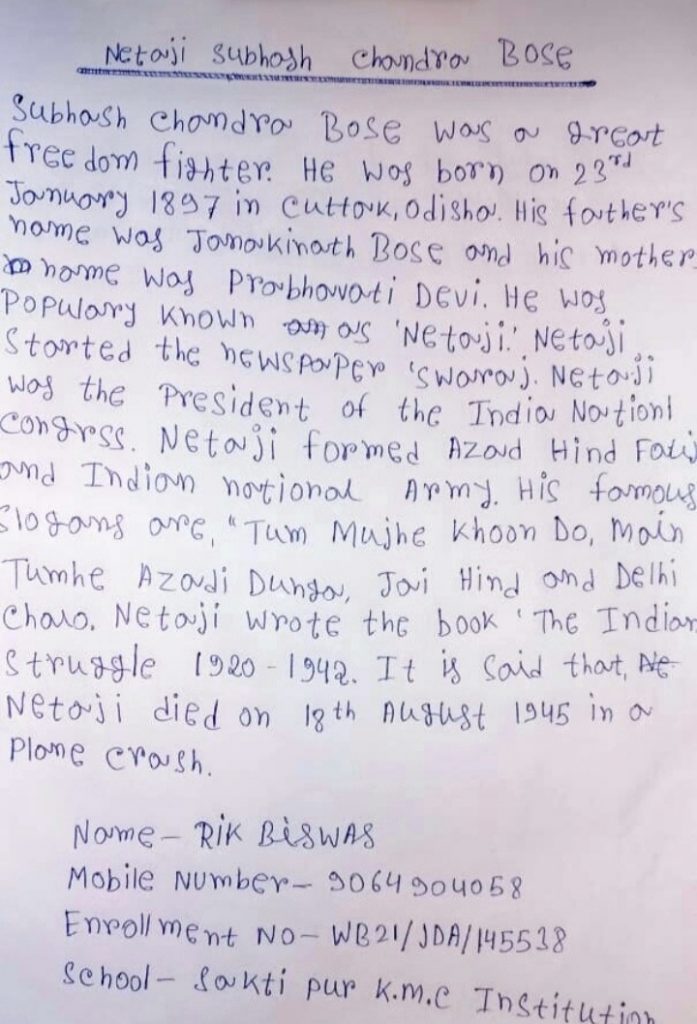 Netaji Subhash Chandra Bose
Subhash Chandra Bose was a great
freedom fighter. He was born on 23rd
January 1897 in Cuttak, Odisha. His father's
name was Janakinath Bose and his mother
name was Prabhavati Devi. He was
Populary known as 'Netaji.' Netaji
Started the newspaper 'Swaraj. Netaji
was the President of the India Nationl
Congrss. Netaji formed Azad Hind Fauj
and Indian national Army. His famous
Slogans are, "Tum Mujhe Khoon Do, Main
Tumhe Azadi Dunga, Jai Hind and Delhi
Chalo. Netaji wrote the book 'The Indian
Struggle 1920-1942. It is Said that, He
Netaji died on 18th August 1945 in a
Plane crash.
Name - Rik Biswas
Mobile Number - 9064904058
Enrollment No - WB21/JDA/145538
School - Sakti pur K.M.C Institution